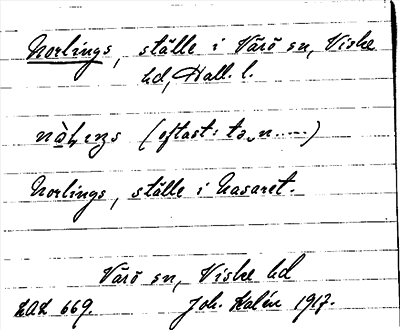 Norlings, ställe i Värö sn, Viske
hd, Hall. l.
(oftast: tə n.....)
Norlings, ställe i Nasaret.
Värö sn, Viske hd
LAL 669. Joh. Kalén 1917.